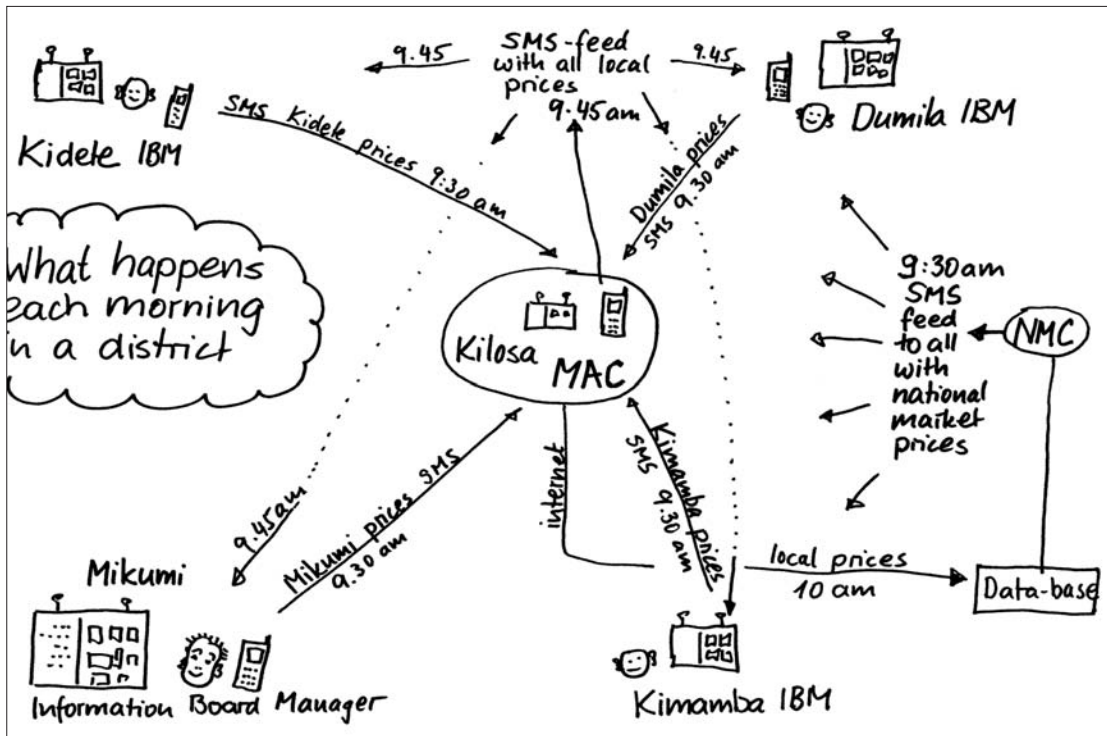 9.45
SMS-feed
with all local
prices
9.45 am
9.45
Kidete IBM
SMS Kidete prices 9:30 am
Dumila IBM
Dumila prices
SMS 9.30 am
What happens
each morning
in a district
Kilosa
MAC
9:30am
SMS
feed
to all
with
national
market
prices
NMC
internet
Kimamba prices
SMS 9.30 am
9.45am
Mikumi prices SMS
9.30 am
local prices
10 am
Data-base
Mikumi
Information Board Manager
Kimamba IBM